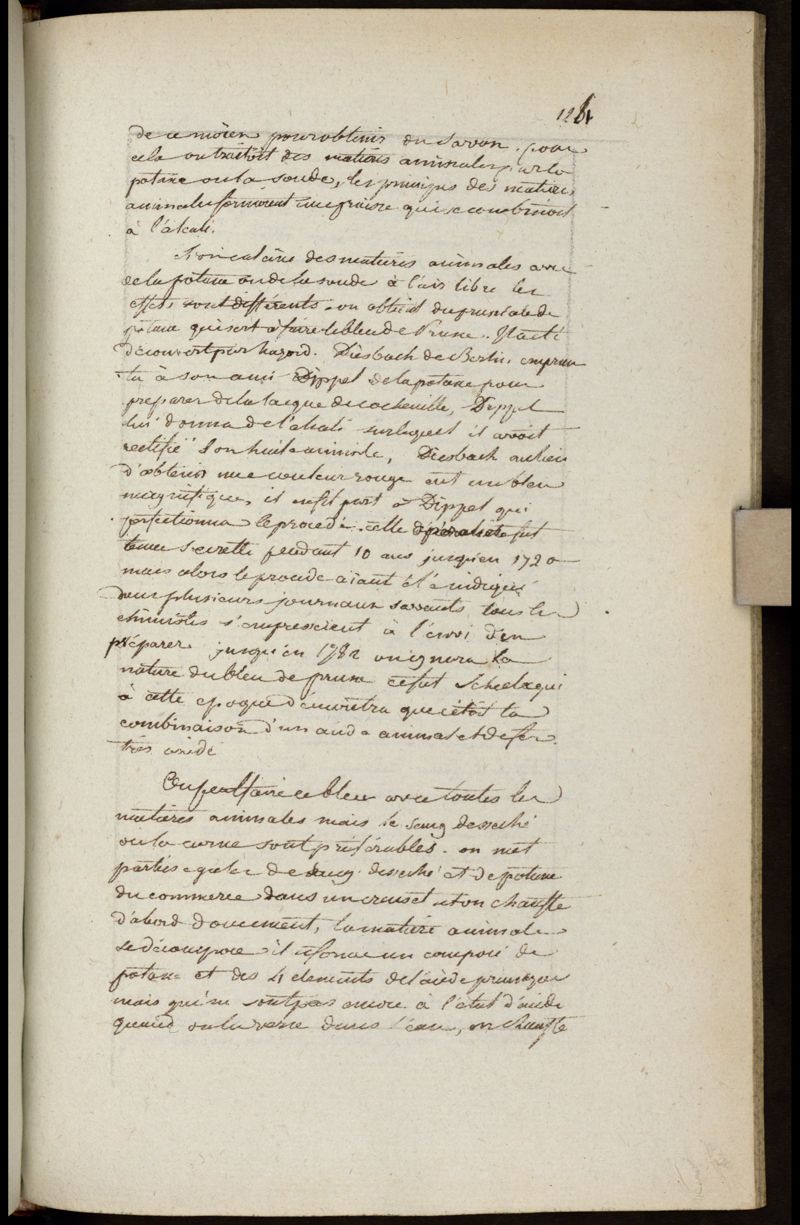 124
de ce moïen pour obtenir du Savon. pour
cela on traitoit des matières animales par la
potasse ou la soude, les principes des matières
animales formoient une graisse qui se combinoit
à l'alcali.
Si on calcine des matières animales avec
de la potasse ou de la soude à l'air libre les
effets sont différents. on obtient du prussiate de
potasse qui sert à faire le bleu de Prusse. Il a été
découvert par hazard. Diesbach de Berlin, emprun
ta à son ami Dippel de la potasse pour
préparer de la lacque de cochenille, Dippel
lui donna de l'alcali sur lequel il avoit
rectifié son huile animale, Diesbach au lieu
d'obtenir une couleur rouge eut un bleu
magnifique, il en fit part à Dippel qui
perfectionna le procédé. cette opération fut
tenue secrette pendant 10 ans jusqu'en 1720
mais alors le procédé aïant été indiqué
dans plusieurs journaux savants tous les
chimistes s'empressèrent à l'envi d'en
préparer. jusqu'en 1782 on ignora la
nature du bleu de prusse ce fut Scheele qui
à cette epoque démontra que c'étoit la
combinaison d'un acide animal et de fer
très oxidé
On peut faire ce bleu avec toutes les
matières animales mais le sang desseché
ou la corne sont préférables. on met
parties egales de sang desseché et de potasse
du commerce dans un creuset et on chauffe
d'abord doucement, la matière animale
se décompose il se forme un composé de
potasse et des 4 elements de l'acide prussique
mais qui ne sont pas encore à l'état d'acide
quand on les verse dans l'eau, on chauffe